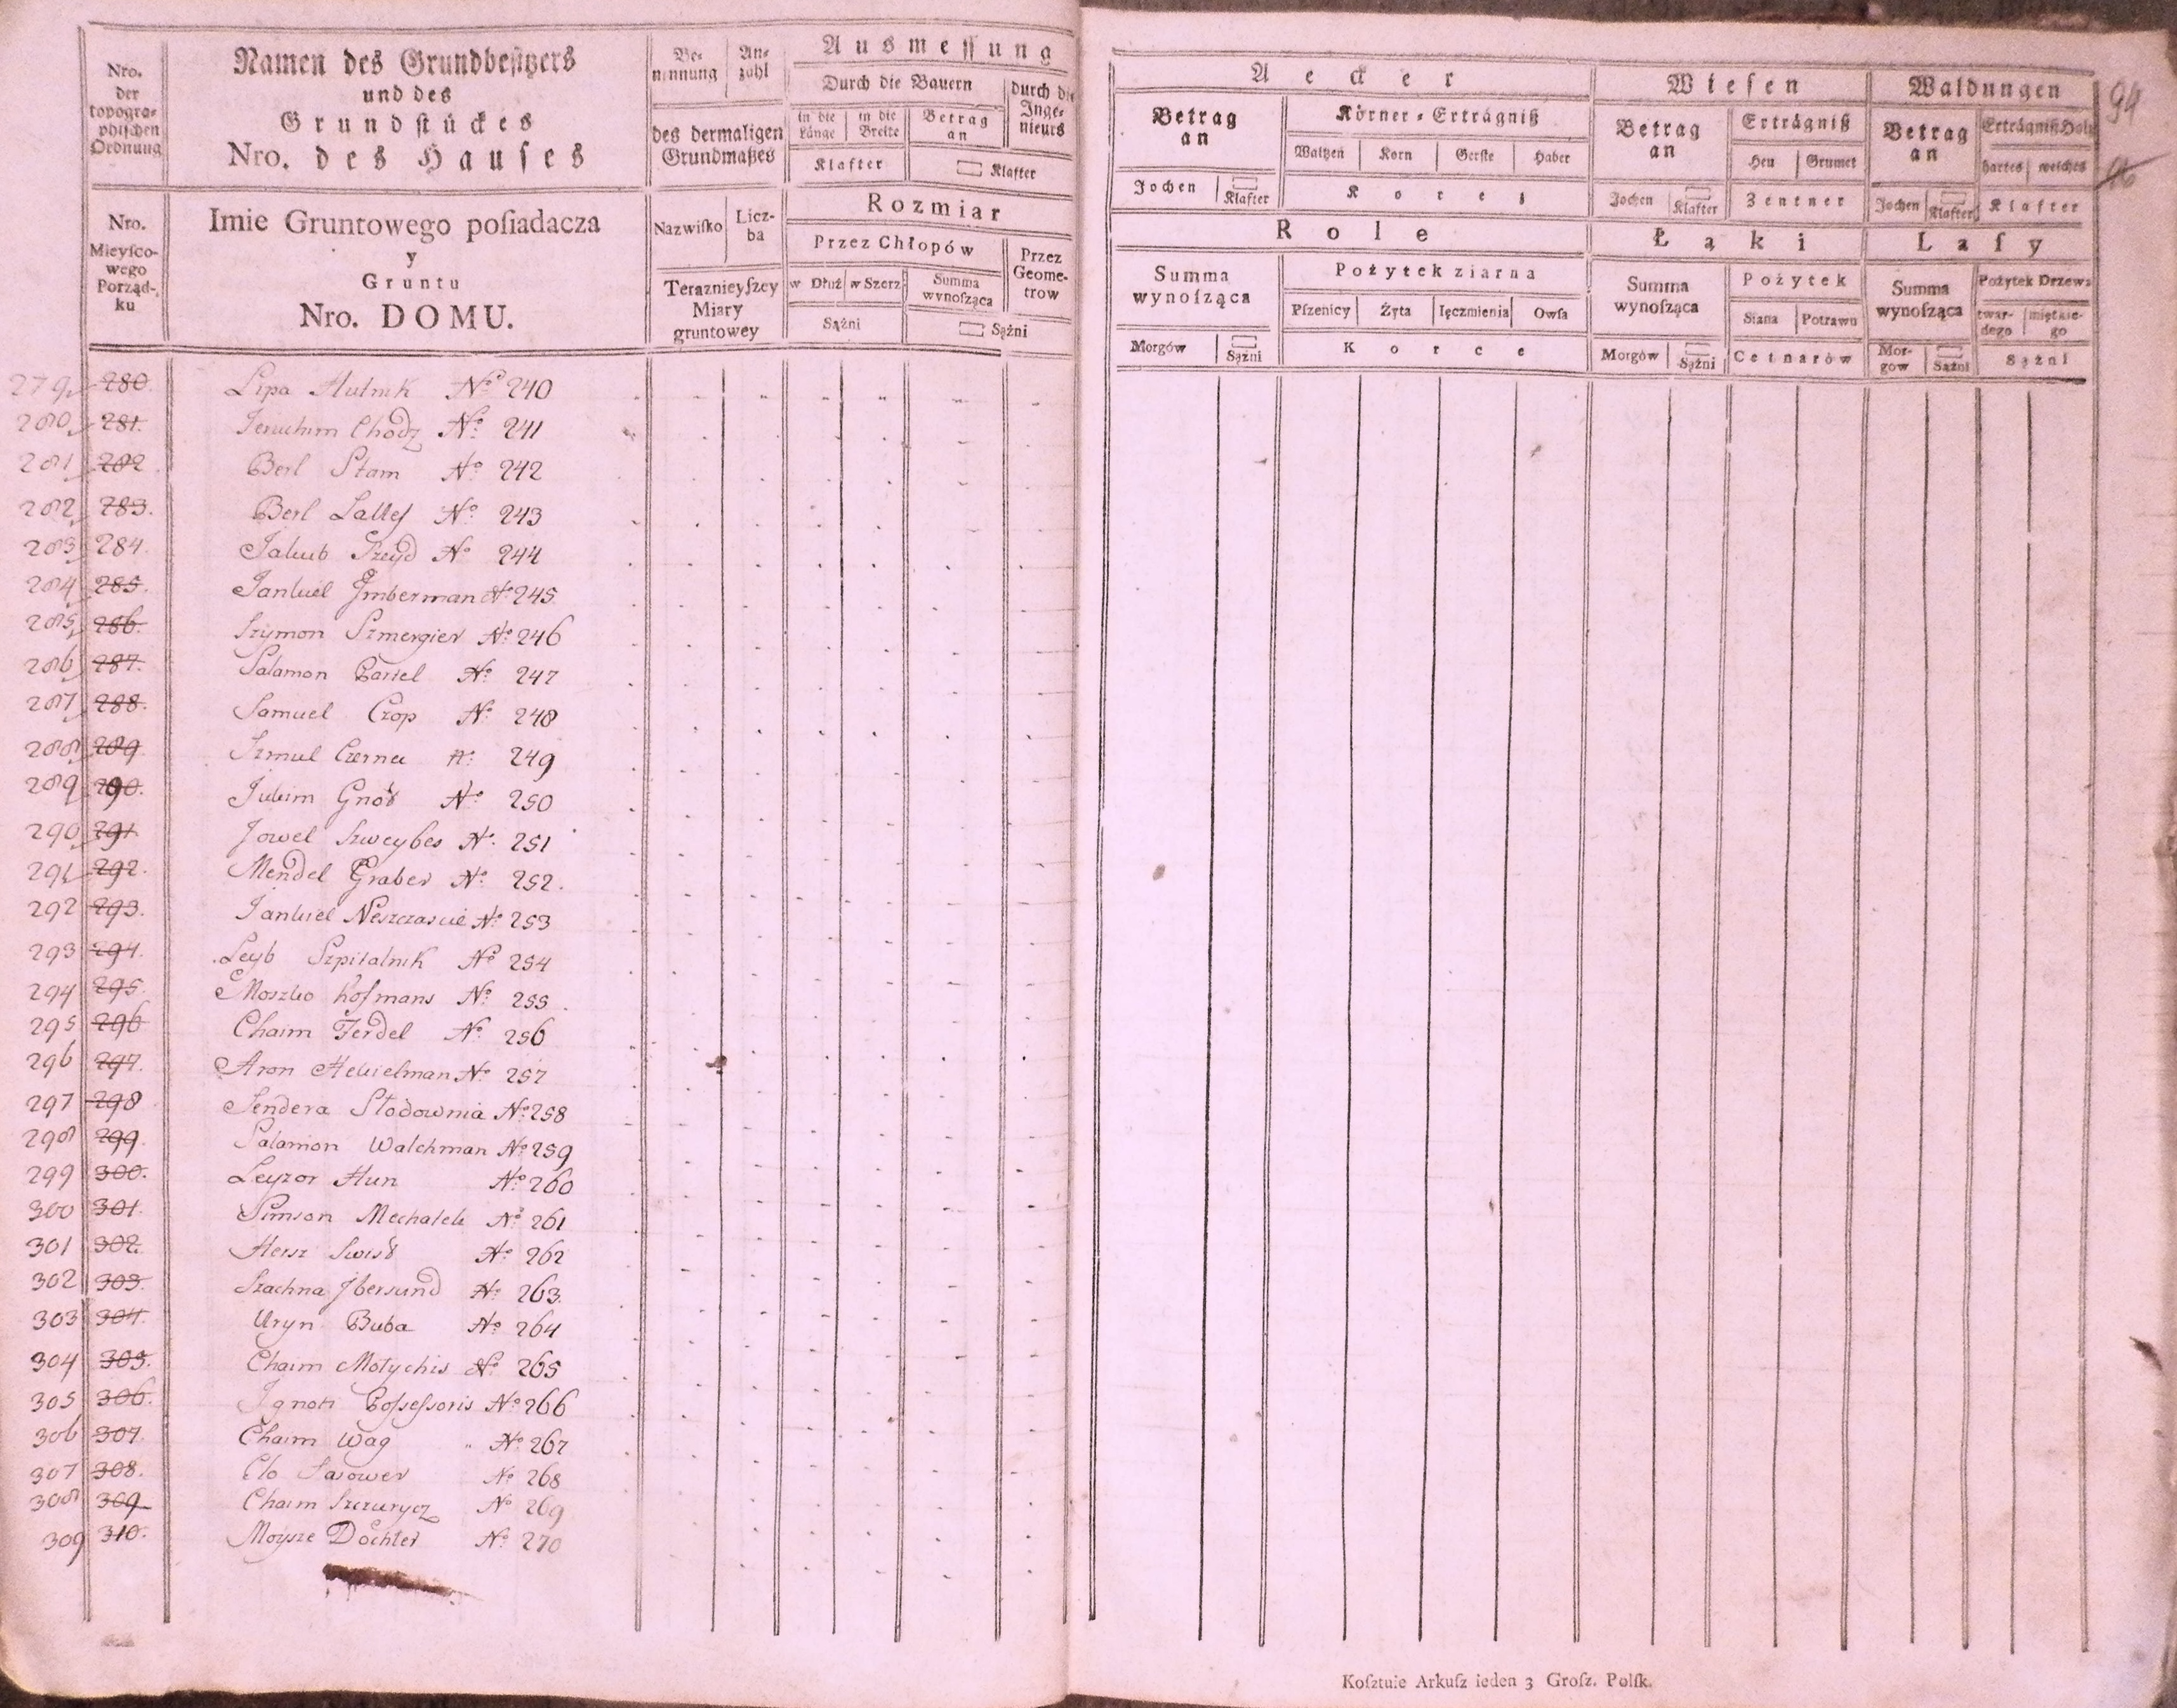 Nro. der topographischen Ordnung
Namen des Grundbesitzers
und des
Grundstückes
Nro. des Hauses
Benennung | Anzahl
des dermaligen Grundmaßes
Ausmessung
Durch die Bauern
durch die Ingenieurs
in die Länge | in die Breite | Betrag an
Klafter | □ Klafter
Nro. Mieyscowego Porządku
Imie Gruntowego posiadacza
y
Gruntu
Nro. DOMU.
Nazwisko | Liczba
Teraznieyszey Miary gruntowey
Rozmiar
Przez Chłopów
Przez Geometrow
w Dłuż | w Szerz | Summa wynosząca
Sążni | □ Sążni
Aecker
Betrag an
Körner-Erträgniß
Waitzen | Korn | Gerste | Haber
Jochen | □ Klafter | Korez
Role
Summa wynosząca
Pożytek ziarna
Pszenicy | Żyta | Ięczmienia | Owsa
Morgów | □ Sążni | Korce
Wiesen
Betrag an
Erträgniß
Heu | Grumet
Jochen | □ Klafter | Zentner
Łąki
Summa wynosząca
Pożytek
Siana | Potrawu
Morgów | □ Sążni | Cetnarów
Waldungen
Betrag an
Erträgniß Holz
hartes | weiches
Jochen | □ Klafter | Klafter
Lasy
Summa wynosząca
Pożytek Drzewa
twardego | miętkiego
Morgow | □ Sążni | Sążni
94
279 280. Lipa Hutnik No 240
280 281. Jeruchim Chodz No 241
281 282 Berl Stam No 242
282 283. Berl No 243
283 284. Jakub No 244
284 285. Jankiel Jmberman No 245
285 286. Szymon Szmergier No 246
286 287. Salamon No 247
287 288. Samuel Czop No 248
288 289 Szmul No 249
289 290. No 250
290 291 Jowel No 251
291 292. Mendel Graber No 252.
292 293. Jankiel No 253
293 294. Leyb Szpitalnik No 254
294 295. Moszko Hofmans No 255
295 296 Chaim Ferdel No 256
296 297. Aron No 257
297 298 Sendera Słodownia No 258
298 299 Salamon Walchman No 259
299 300. Leyzor Hun No 260
300 301. Simson No 261
301 302. Hersz No 262
302 303. Szachna Jbersund No 263.
303 304. Uryn Buba No 264
304 305. Chaim Motychis No 265
305 306. Ignoti Possessoris No 266
306 307. Chaim Wag No 267
307 308. No 268
308 309 Chaim No 269
309 310. Moysze Dochter No 270
Kosztuie Arkusz ieden 3 Grosz. Polsk.